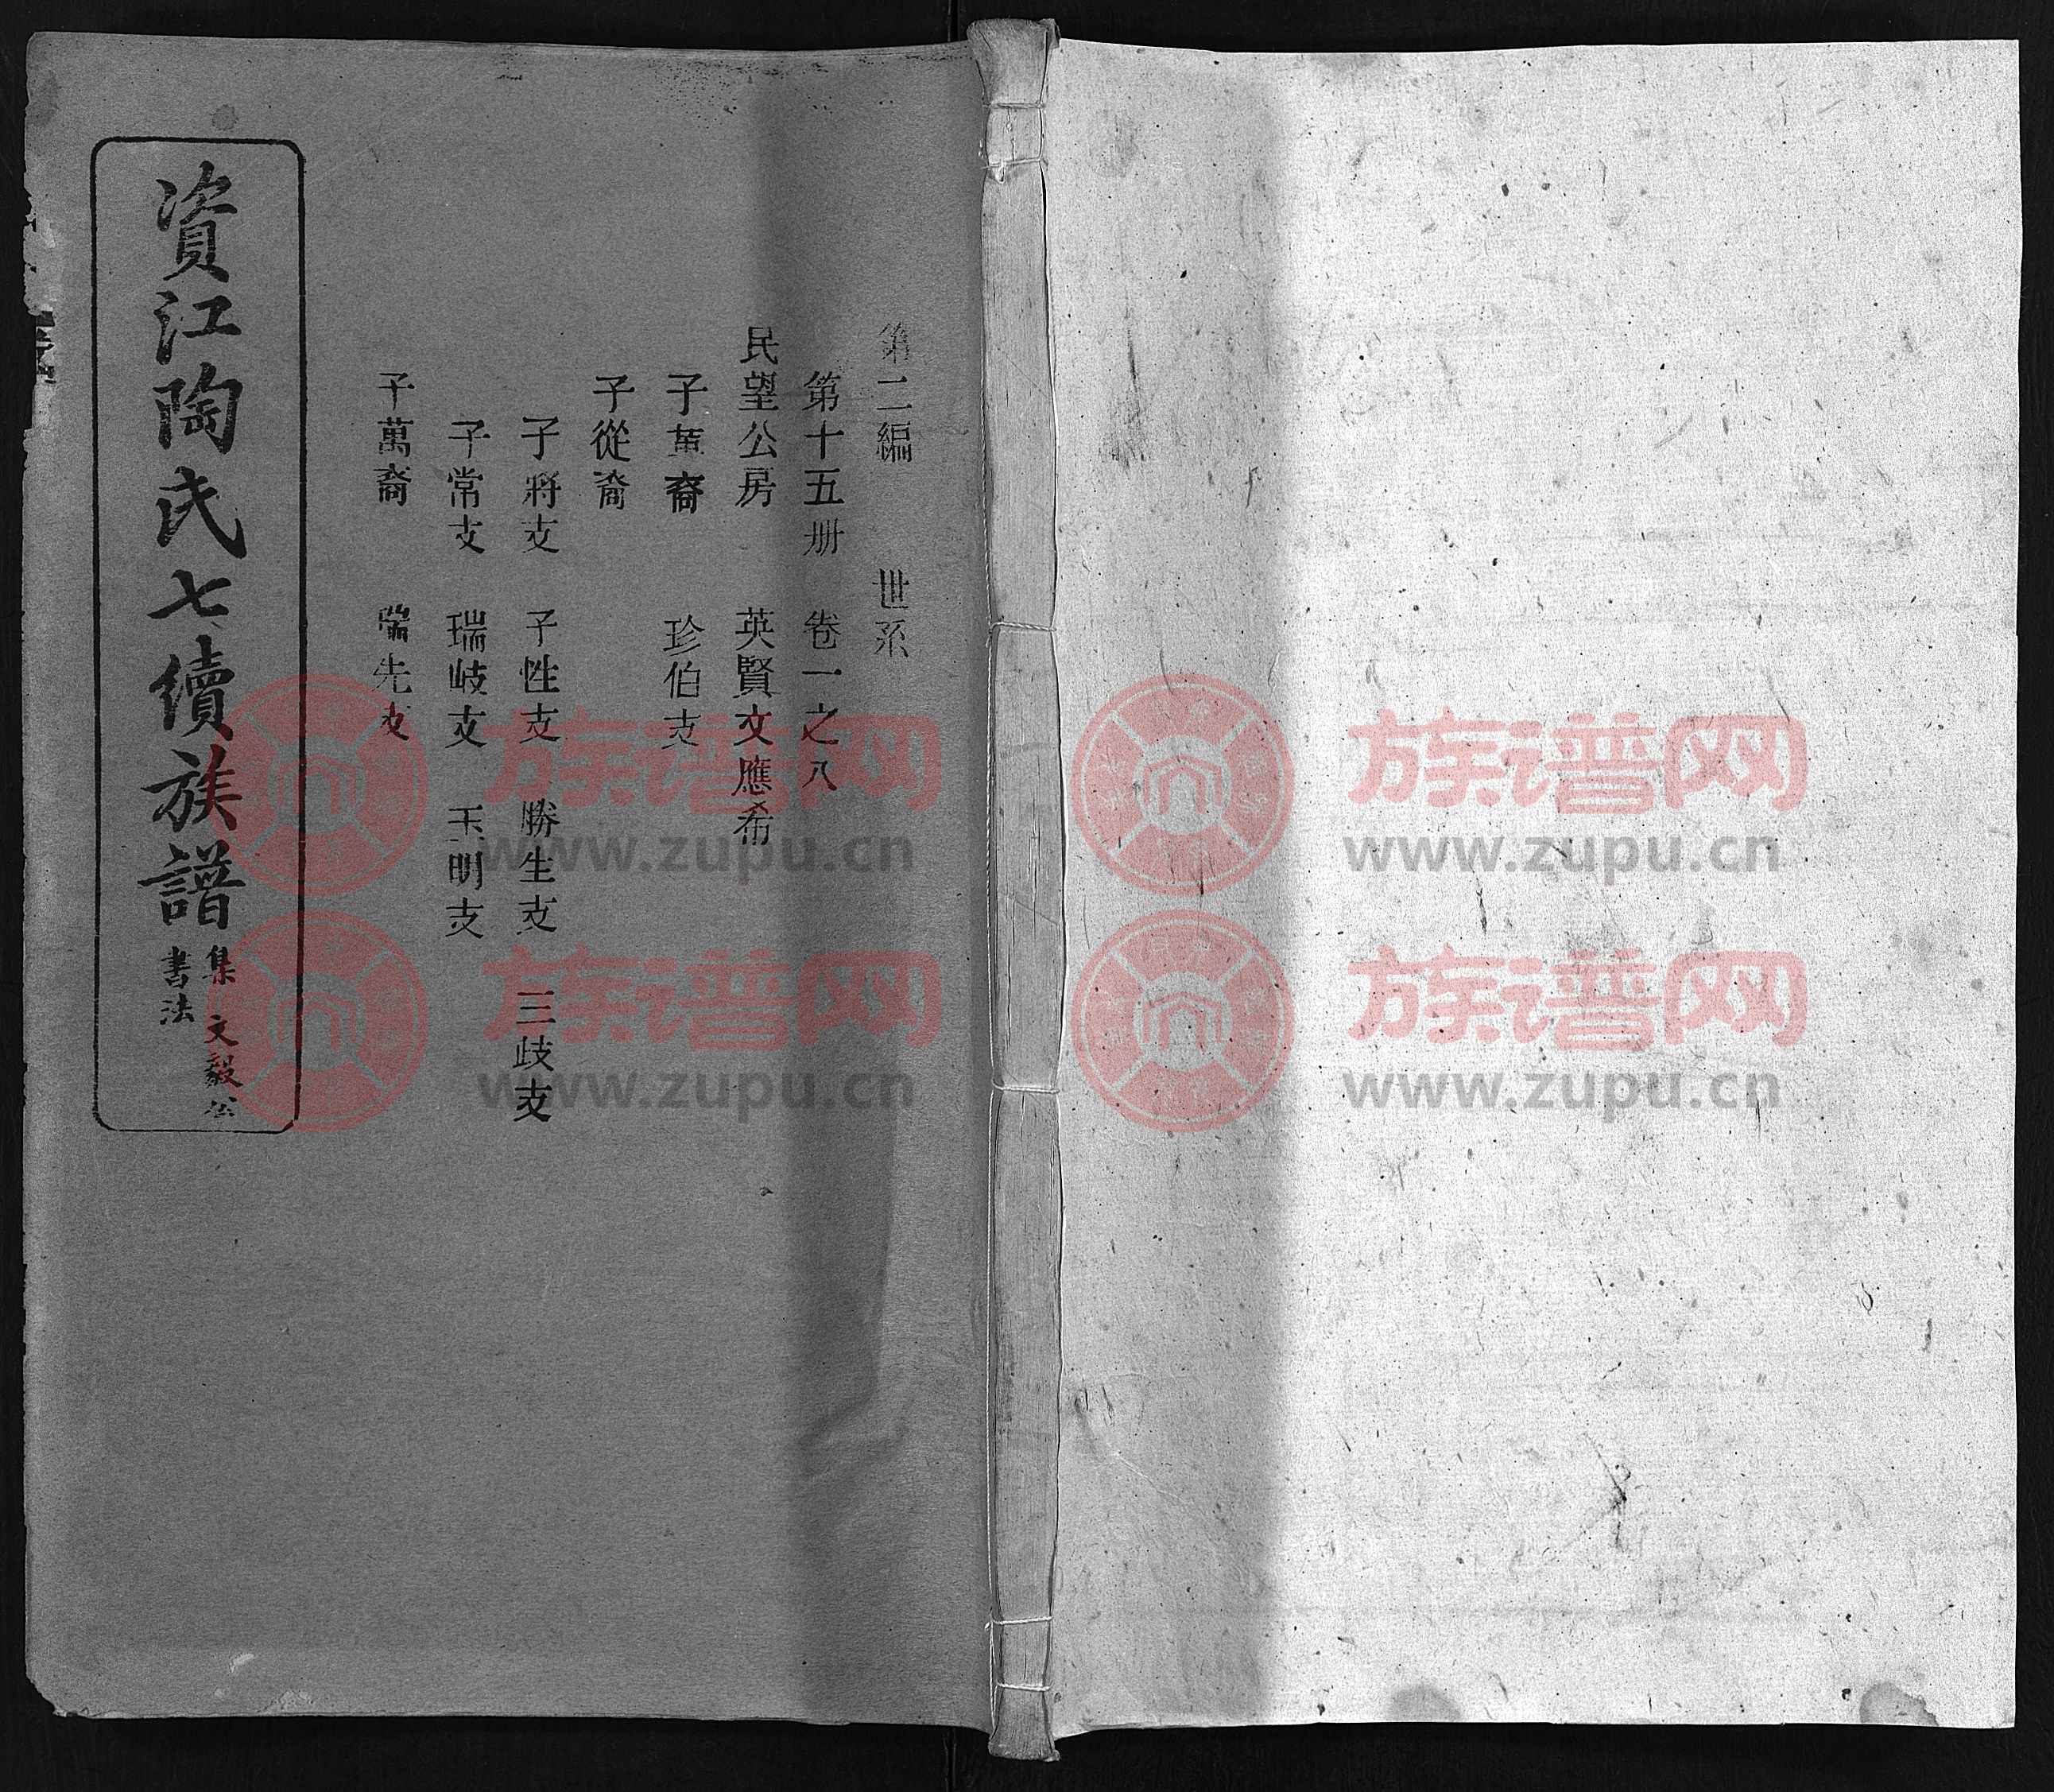 第二編　世系
第十五册　卷一之八
民望公房　英賢文應希
子董裔　珍伯支
子從裔
子將支　子性支　勝生支　三歧支
子常支　瑞岐支　玉明支
子萬裔　瑞先支
資江陶氏七續族譜
集文毅公
書法
族谱网 族谱网
www.zupu.cn www.zupu.cn
族谱网 族谱网
www.zupu.cn www.zupu.cn